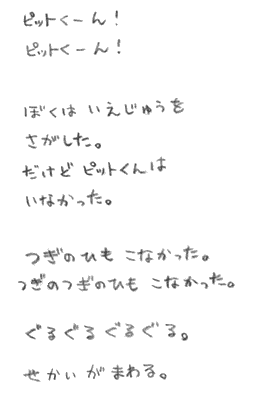 ピットくーん!
ピットくーん!
ぼくは いえじゅうを
さがした。
だけど ピットくんは
いなかった。
つぎのひも こなかった。
つぎのつぎのひも こなかった。
ぐるぐるぐるぐる。
せかいがまわる。